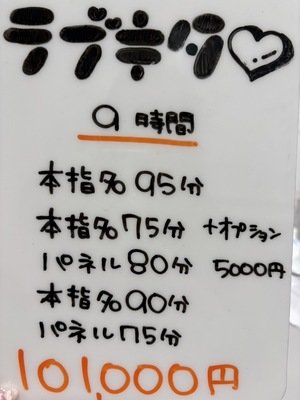 ラブギグ♡
9時間
本指名95分
本指名75分 +オプション
パネル80分 5000円
本指名90分
パネル75分
101,000円